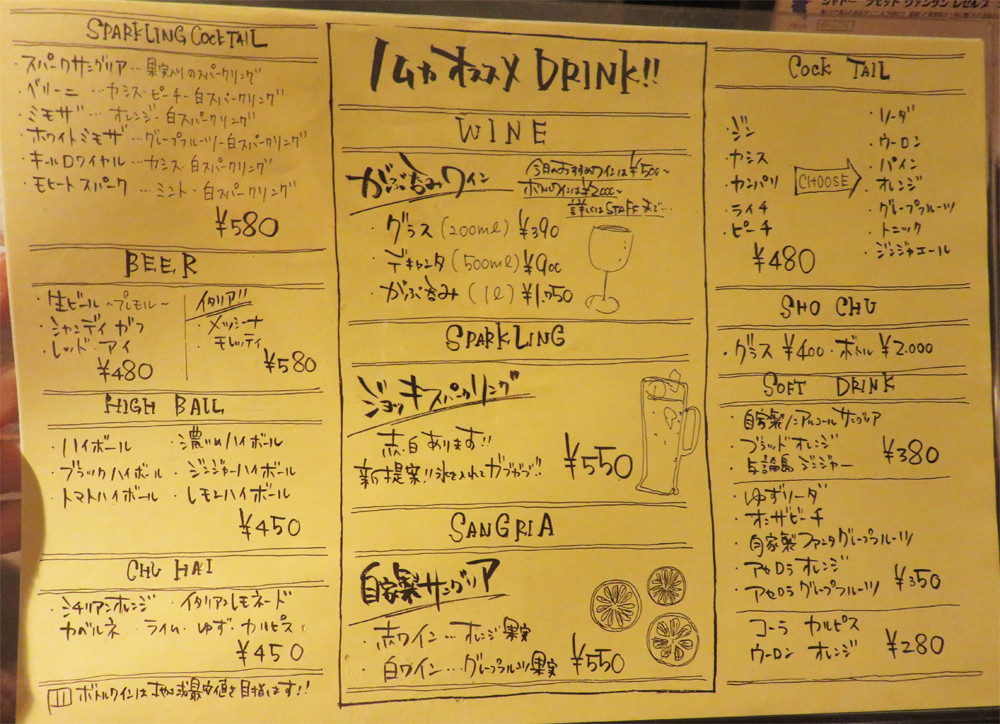 SPARKLING COCKTAIL
・スパークサングリア…果実入りのスパークリング
・ベリーニ…カシス・ピーチ・白スパークリング
・ミモザ…オレンジ・白スパークリング
・ホワイトミモザ…グレープフルーツ・白スパークリング
・キールロワイヤル…カシス・白スパークリング
・モヒートスパーク…ミント・白スパークリング
¥580
BEER
・生ビール ~プレモル~
・シャンディガフ
・レッド・アイ
¥480
イタリア!!
・メッシーナ
・モレッティ
¥580
HIGH BALL
・ハイボール ・濃いめハイボール
・ブラックハイボール ・ジンジャーハイボール
・トマトハイボール ・レモンハイボール
¥450
CHU HAI
・シチリアンオレンジ ・イタリアンレモネード
カベルネ ・ライム・ゆず・カルピス
¥450
ボトルワインは 最安値を目指します!!
オススメ DRINK!!
WINE
がぶ呑みワイン
今日のおすすめワインは¥500~
ボトルワインは¥2000~
詳しくはSTAFFまで…
・グラス(200ml) ¥390
・デキャンタ(500ml) ¥900
・がぶ呑み(1l) ¥1,750
SPARKLING
ジョッキスパークリング
赤・白あります!!
新提案!!氷を入れてガブガブ!!
¥550
SANGRIA
自家製サングリア
・赤ワイン…オレンジ果実
・白ワイン…グレープフルーツ果実
¥550
COCK TAIL
・ジン
・カシス
・カンパリ
・ライチ
・ピーチ
CHOOSE
・ソーダ
・ウーロン
・パイン
・オレンジ
・グレープフルーツ
・トニック
・ジンジャエール
¥480
SHO CHU
・グラス ¥400 ・ボトル ¥2,000
SOFT DRINK
・自家製ノンアルコールサングリア
・ブラッドオレンジ
・与論島ジンジャー
¥380
・ゆずソーダ
・オンザピーチ
・自家製ファンタグレープフルーツ
・アセロラオレンジ
・アセロラグレープフルーツ
¥350
コーラ カルピス
ウーロン オレンジ
¥280